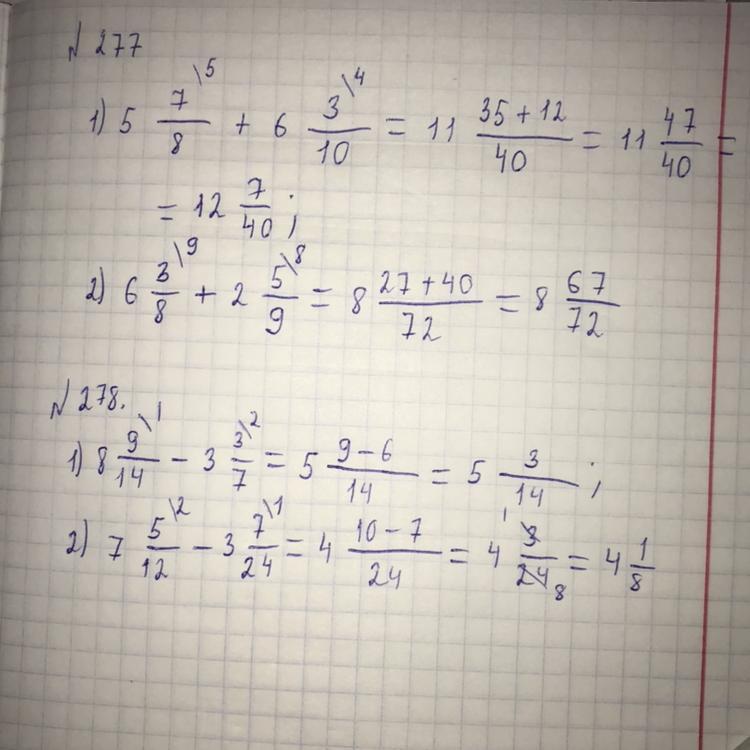 № 277
1) 5 7\5/8 + 6 3\4/10 = 11 35+12/40 = 11 47/40 =
= 12 7/40;
2) 6 3\9/8 + 2 5\8/9 = 8 27+40/72 = 8 67/72
№ 278.
1) 8 9\1/14 - 3 3\2/7 = 5 9-6/14 = 5 3/14;
2) 7 5\2/12 - 3 7\1/24 = 4 10-7/24 = 4 1 3/24 8 = 4 1/8